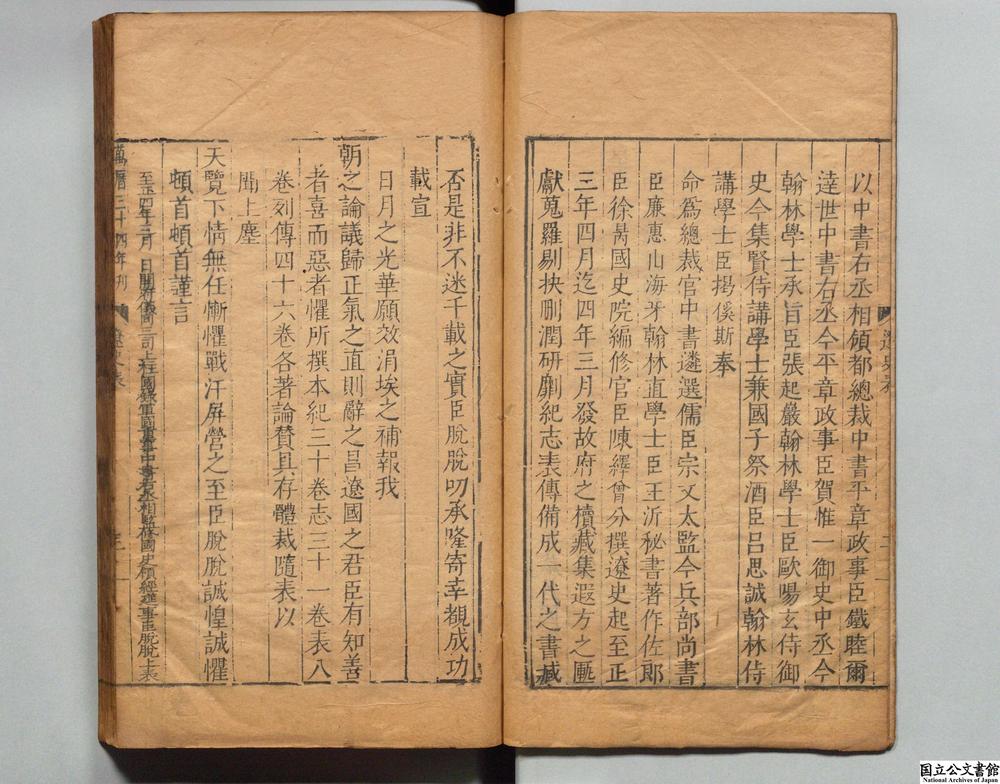 以中書右丞相領都總裁中書平章政事臣鐵睦爾
達世中書右丞今平章政事臣賀惟一御史中丞今
翰林學士承旨臣張起嚴翰林學士臣歐陽玄侍御
史今集賢侍講學士兼國子祭酒臣呂思誠翰林侍
講學士臣揭傒斯奉
命爲總裁官中書遴選儒臣宗文太監今兵部尚書
臣廉惠山海牙翰林直學士臣王沂秘書著作佐郎
臣徐昺國史院編修官臣陳繹曾分撰遼史起至正
三年四月迄四年三月發故府之櫝藏集遐方之匭
獻蒐羅剔抉刪潤研劘紀志表傳備成一代之書臧
遼史表
二
否是非不迷千載之實臣脫脫叨承隆寄幸覩成功
載宣
日月之光華願效涓埃之補報我
朝之論議歸正氣之直則辭之昌遼國之君臣有知善
者喜而惡者懼所撰本紀三十卷志三十一卷表八
卷列傳四十六卷各著論贊具存體裁隨表以
聞上塵
天覽下情無任慚懼戰汗屏營之至臣脫脫誠惶誠懼
頓首頓首謹言
至正四年三月 日開府儀同三司上柱國錄軍國重事中書右丞相監修國史領經筵事臣脫脫上表
萬曆三十四年刊
遼史表
三
国立公文書館
National Archives of Japan